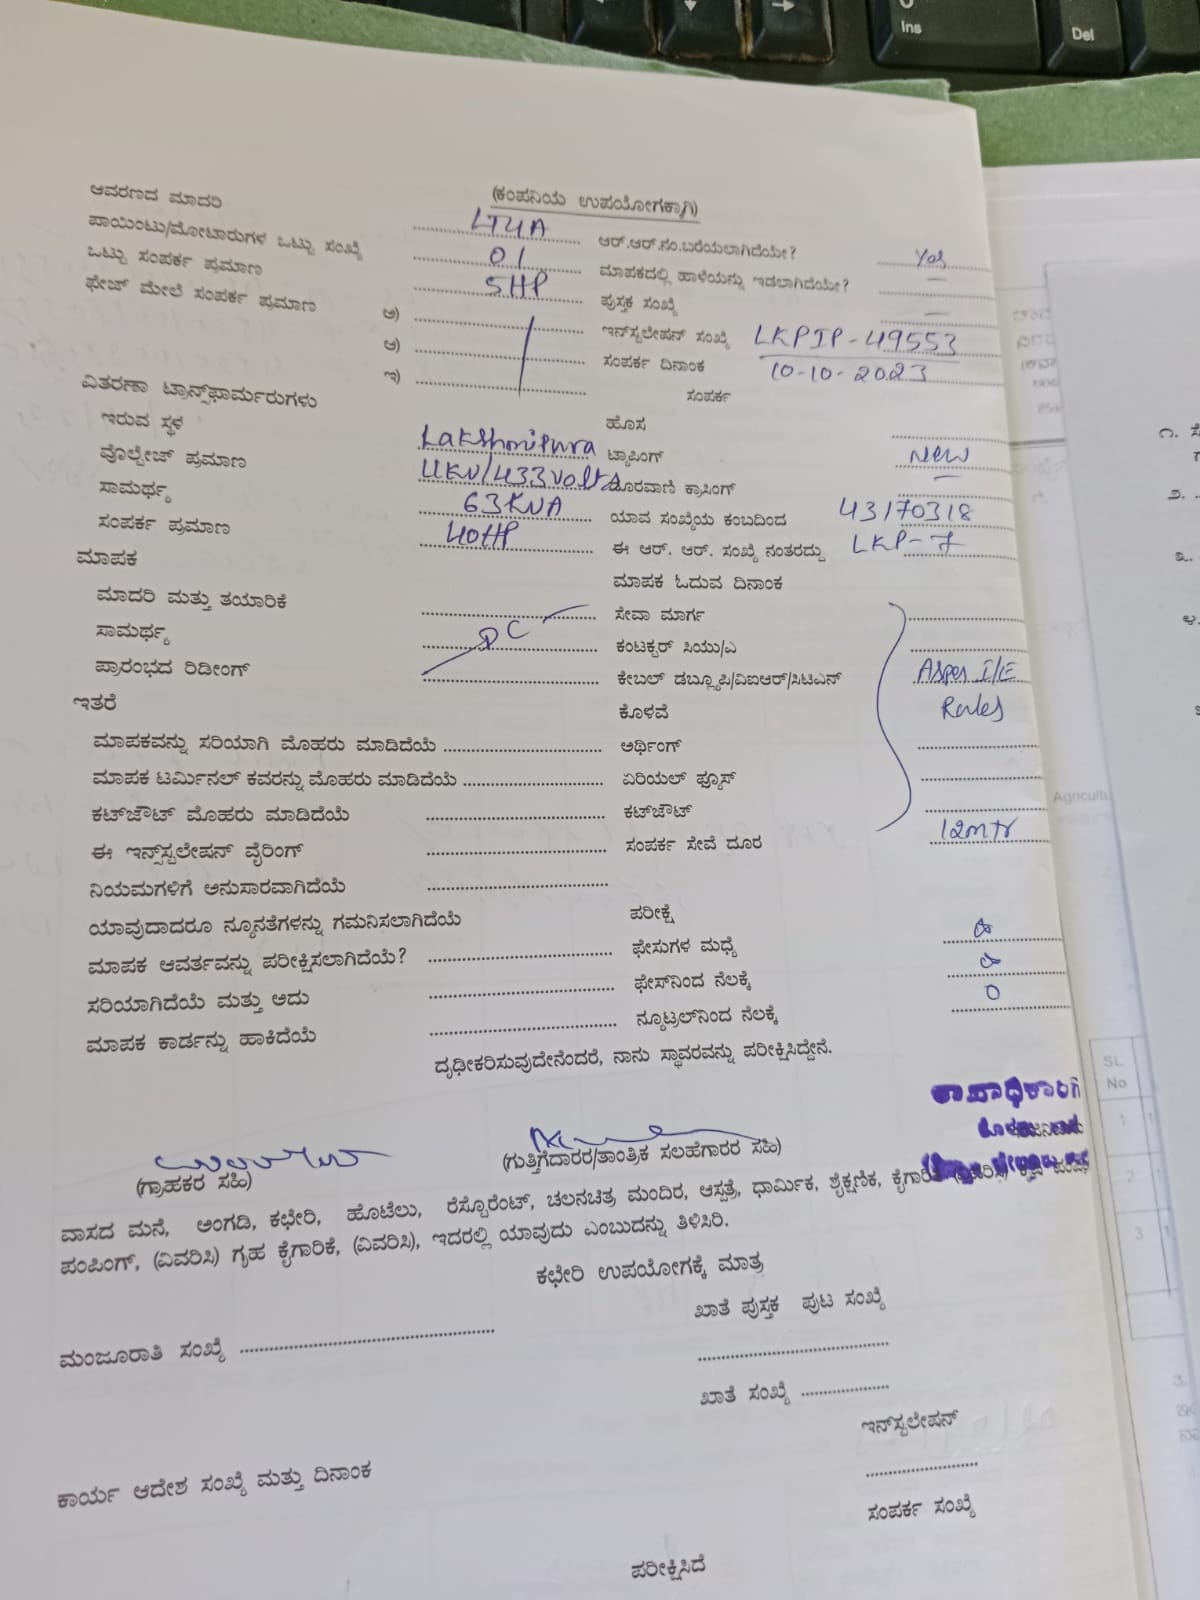 Ins
Del
(ಕಂಪನಿಯ ಉಪಯೋಗಕ್ಕಾಗಿ)
ಆವರಣದ ಮಾದರಿ LT4A ಆರ್.ಆರ್.ನಂ.ಬರೆಯಲಾಗಿದೆಯೇ? Yes
ಪಾಯಿಂಟು/ಮೋಟಾರುಗಳ ಒಟ್ಟು ಸಂಖ್ಯೆ 01 ಮಾಪಕದಲ್ಲಿ ಹಾಳೆಯನ್ನು ಇಡಲಾಗಿದೆಯೇ? —
ಒಟ್ಟು ಸಂಪರ್ಕ ಪ್ರಮಾಣ 5HP ಪುಸ್ತಕ ಸಂಖ್ಯೆ —
ಫೇಜ್ ಮೇಲೆ ಸಂಪರ್ಕ ಪ್ರಮಾಣ ಅ) ಇನ್‌ಸ್ಟಲೇಷನ್ ಸಂಖ್ಯೆ LKPIP-49553
ಆ) ಸಂಪರ್ಕ ದಿನಾಂಕ 10-10-2023
ಇ) ಸಂಪರ್ಕ
ವಿತರಣಾ ಟ್ರಾನ್ಸ್‌ಫಾರ್ಮರುಗಳು ಹೊಸ
ಇರುವ ಸ್ಥಳ Lakshmipura ಟ್ಯಾಪಿಂಗ್ New
ವೊಲ್ಟೇಜ್ ಪ್ರಮಾಣ 11KV/433Volts ದೂರವಾಣಿ ಕ್ರಾಸಿಂಗ್ —
ಸಾಮರ್ಥ್ಯ 63KVA ಯಾವ ಸಂಖ್ಯೆಯ ಕಂಬದಿಂದ 43170318
ಸಂಪರ್ಕ ಪ್ರಮಾಣ 40HP ಈ ಆರ್. ಆರ್. ಸಂಖ್ಯೆ ನಂತರದ್ದು LKP-7
ಮಾಪಕ ಮಾಪಕ ಓದುವ ದಿನಾಂಕ
ಮಾದರಿ ಮತ್ತು ತಯಾರಿಕೆ ಸೇವಾ ಮಾರ್ಗ
ಸಾಮರ್ಥ್ಯ DC ಕಂಟಕ್ಟರ್ ಸಿಯು/ಎ
ಪ್ರಾರಂಭದ ರಿಡೀಂಗ್ ಕೇಬಲ್ ಡಬ್ಲ್ಯೂಪಿ/ವಿಐಆರ್/ಸಿಟಿಎಸ್ Asper I/E
ಇತರೆ ಕೊಳವೆ Rules
ಮಾಪಕವನ್ನು ಸರಿಯಾಗಿ ಮೊಹರು ಮಾಡಿದೆಯೆ ಅರ್ಥಿಂಗ್
ಮಾಪಕ ಟರ್ಮಿನಲ್ ಕವರನ್ನು ಮೊಹರು ಮಾಡಿದೆಯೆ ಏರಿಯಲ್ ಫ್ಯೂಸ್
ಕಟ್‌ಔಟ್ ಮೊಹರು ಮಾಡಿದೆಯೆ ಕಟ್‌ಔಟ್
ಈ ಇನ್ಸ್‌ಸ್ಟಲೇಷನ್ ವೈರಿಂಗ್ ಸಂಪರ್ಕ ಸೇವೆ ದೂರ 12mtr
ನಿಯಮಗಳಿಗೆ ಅನುಸಾರವಾಗಿದೆಯೆ
ಯಾವುದಾದರೂ ನ್ಯೂನತೆಗಳನ್ನು ಗಮನಿಸಲಾಗಿದೆಯೆ ಪರೀಕ್ಷೆ
ಮಾಪಕ ಆವರ್ತವನ್ನು ಪರೀಕ್ಷಿಸಲಾಗಿದೆಯೆ? ಫೇಸುಗಳ ಮಧ್ಯೆ
ಸರಿಯಾಗಿದೆಯೆ ಮತ್ತು ಅದು ಫೇಸ್‌ನಿಂದ ನೆಲಕ್ಕೆ
ಮಾಪಕ ಕಾರ್ಡನ್ನು ಹಾಕಿದೆಯೆ ನ್ಯೂಟ್ರಲ್‌ನಿಂದ ನೆಲಕ್ಕೆ 0
ದೃಢೀಕರಿಸುವುದೇನೆಂದರೆ, ನಾನು ಸ್ಥಾವರವನ್ನು ಪರೀಕ್ಷಿಸಿದ್ದೇನೆ.
(ಗ್ರಾಹಕರ ಸಹಿ) (ಗುತ್ತಿಗೆದಾರರ/ತಾಂತ್ರಿಕ ಸಲಹೆಗಾರರ ಸಹಿ)
ವಾಸದ ಮನೆ, ಅಂಗಡಿ, ಕಛೇರಿ, ಹೊಟೆಲು, ರೆಸ್ಟೊರೆಂಟ್, ಚಲನಚಿತ್ರ ಮಂದಿರ, ಆಸ್ಪತ್ರೆ, ಧಾರ್ಮಿಕ, ಶೈಕ್ಷಣಿಕ, ಕೈಗಾರಿಕೆ (ವಿವರಿಸಿ)
ಪಂಪಿಂಗ್, (ವಿವರಿಸಿ) ಗೃಹ ಕೈಗಾರಿಕೆ, (ವಿವರಿಸಿ), ಇದರಲ್ಲಿ ಯಾವುದು ಎಂಬುದನ್ನು ತಿಳಿಸಿರಿ.
ಕಛೇರಿ ಉಪಯೋಗಕ್ಕೆ ಮಾತ್ರ
ಖಾತೆ ಪುಸ್ತಕ ಪುಟ ಸಂಖ್ಯೆ
ಮಂಜೂರಾತಿ ಸಂಖ್ಯೆ
ಖಾತೆ ಸಂಖ್ಯೆ
ಇನ್‌ಸ್ಟಲೇಷನ್
ಕಾರ್ಯ ಆದೇಶ ಸಂಖ್ಯೆ ಮತ್ತು ದಿನಾಂಕ
ಸಂಪರ್ಕ ಸಂಖ್ಯೆ
ಪರೀಕ್ಷಿಸಿದೆ
SL
No
1
2
3